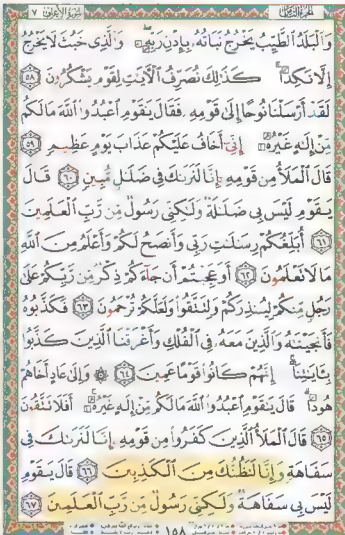 سورة الأعراف ٧
وَالْبَلَدُ الطَّيِّبُ يَخْرُجُ نَبَاتُهُ بِإِذْنِ رَبِّهِ وَالَّذِى خَبُثَ لَا يَخْرُجُ
إِلَّا نَكِدًا كَذَٰلِكَ نُصَرِّفُ الْآيَٰتِ لِقَوْمٍ يَشْكُرُونَ ٥٨
لَقَدْ أَرْسَلْنَا نُوحًا إِلَىٰ قَوْمِهِ فَقَالَ يَٰقَوْمِ اعْبُدُوا اللَّهَ مَا لَكُم
مِّنْ إِلَٰهٍ غَيْرُهُ إِنِّى أَخَافُ عَلَيْكُمْ عَذَابَ يَوْمٍ عَظِيمٍ ٥٩
قَالَ الْمَلَأُ مِن قَوْمِهِ إِنَّا لَنَرَىٰكَ فِى ضَلَٰلٍ مُّبِينٍ ٦٠ قَالَ
يَٰقَوْمِ لَيْسَ بِى ضَلَٰلَةٌ وَلَٰكِنِّى رَسُولٌ مِّن رَّبِّ الْعَٰلَمِينَ
٦١ أُبَلِّغُكُمْ رِسَٰلَٰتِ رَبِّى وَأَنصَحُ لَكُمْ وَأَعْلَمُ مِنَ اللَّهِ
مَا لَا تَعْلَمُونَ ٦٢ أَوَعَجِبْتُمْ أَن جَاءَكُمْ ذِكْرٌ مِّن رَّبِّكُمْ عَلَىٰ
رَجُلٍ مِّنكُمْ لِيُنذِرَكُمْ وَلِتَتَّقُوا وَلَعَلَّكُمْ تُرْحَمُونَ ٦٣ فَكَذَّبُوهُ
فَأَنجَيْنَٰهُ وَالَّذِينَ مَعَهُ فِى الْفُلْكِ وَأَغْرَقْنَا الَّذِينَ كَذَّبُوا
بِـَٔايَٰتِنَا إِنَّهُمْ كَانُوا قَوْمًا عَمِينَ ٦٤ ۞ وَإِلَىٰ عَادٍ أَخَاهُمْ
هُودًا قَالَ يَٰقَوْمِ اعْبُدُوا اللَّهَ مَا لَكُم مِّنْ إِلَٰهٍ غَيْرُهُ أَفَلَا تَتَّقُونَ
٦٥ قَالَ الْمَلَأُ الَّذِينَ كَفَرُوا مِن قَوْمِهِ إِنَّا لَنَرَىٰكَ فِى
سَفَاهَةٍ وَإِنَّا لَنَظُنُّكَ مِنَ الْكَٰذِبِينَ ٦٦ قَالَ يَٰقَوْمِ
لَيْسَ بِى سَفَاهَةٌ وَلَٰكِنِّى رَسُولٌ مِّن رَّبِّ الْعَٰلَمِينَ ٦٧
١٥٨